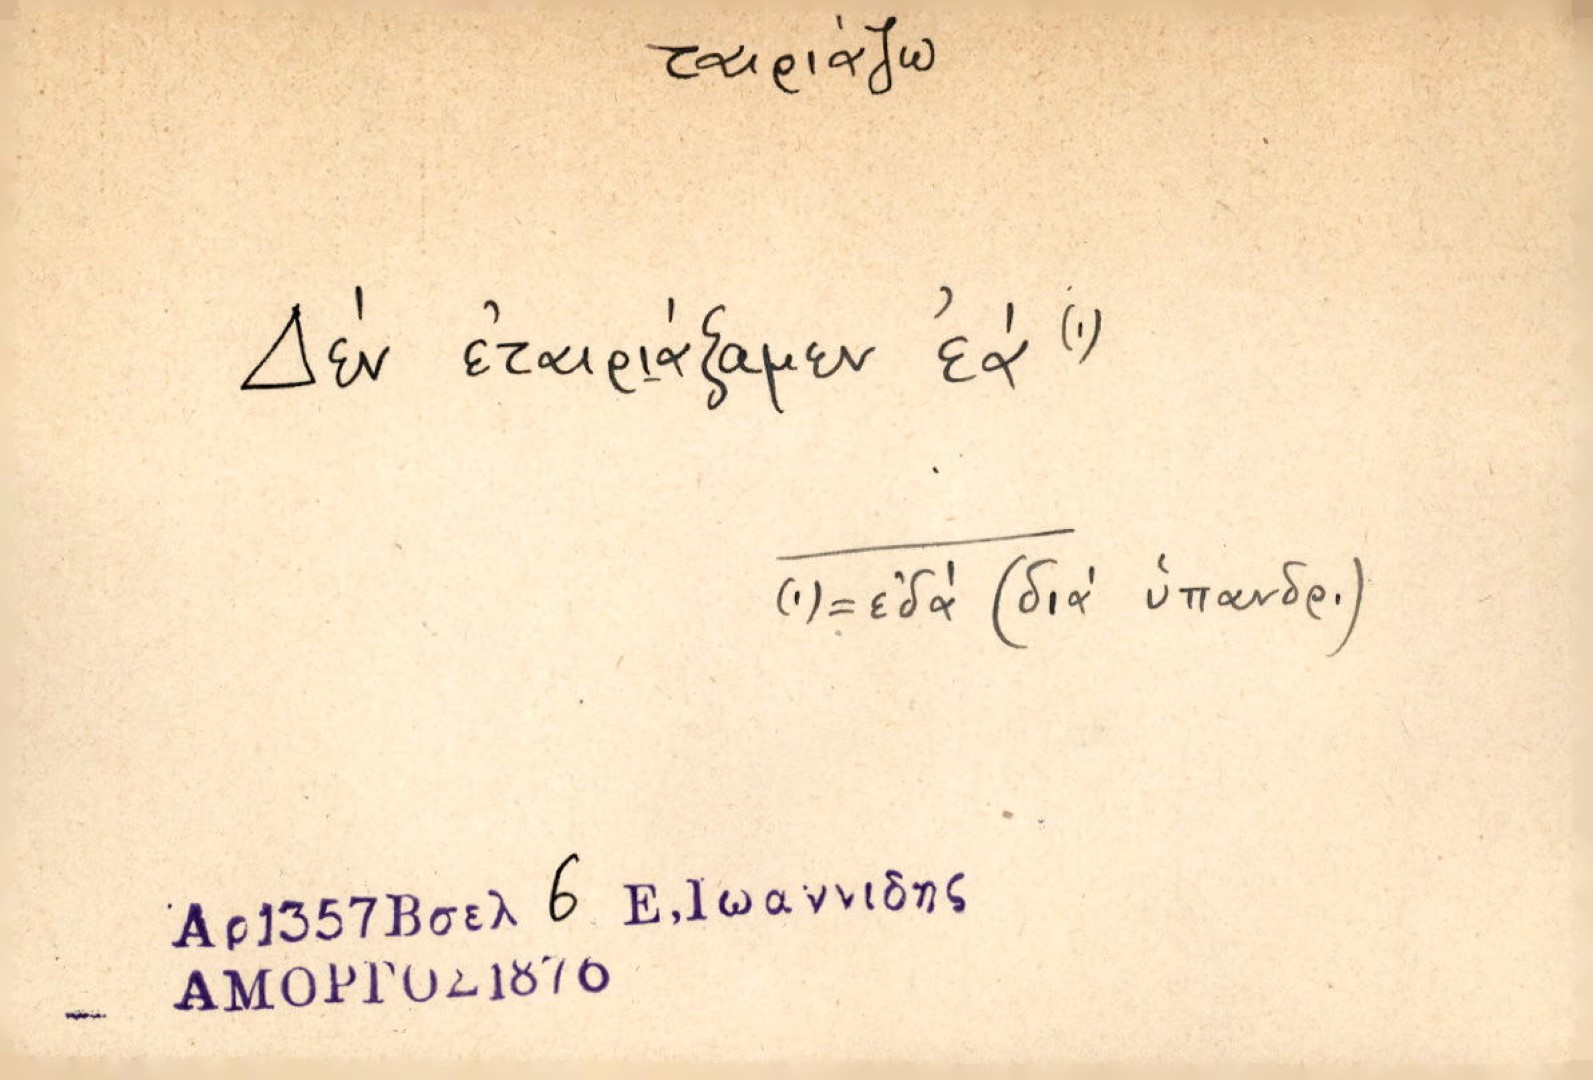 ταιριάζω
Δέν ἐταιριάξαμεν ἐά (1)
(1) = ἐδά (διά ὑπανδρ.)
Αρ1357Βσελ 6 Ε,Ιωαννιδης
ΑΜΟΡΓΟΣ1876